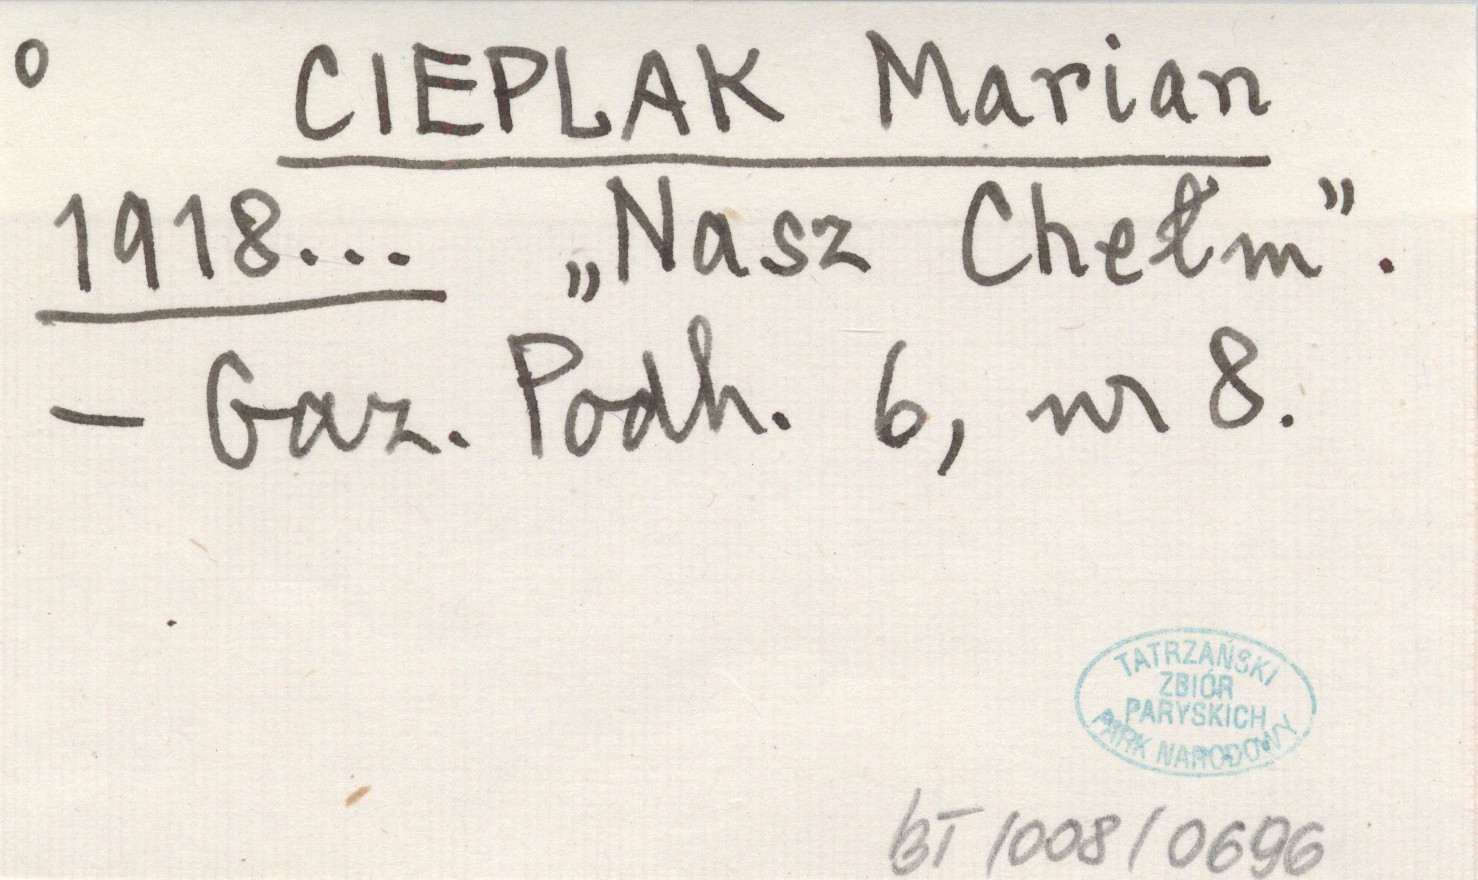 o CIEPLAK Marian
1918... „Nasz Chełm".
— Gaz. Podh. 6, nr 8.
TATRZAŃSKI
ZBIÓR
PARYSKICH
PARK NARODOWY
BT/008/0696